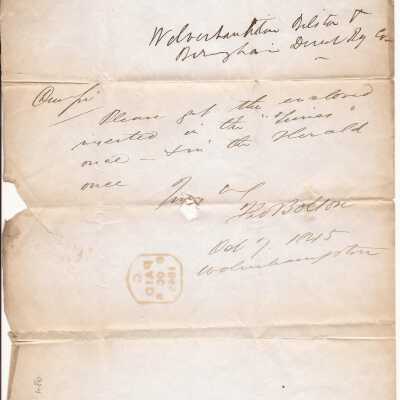 Wolverhamton Bilston &
Birmgham Direct Rly Co
Dear Sir
Please get the enclosed
inserted in the "Times"
once — & in the Herald
once
Yours
Tho Bolton
Oct 7 1845
Wolverhampton
PAID
1845